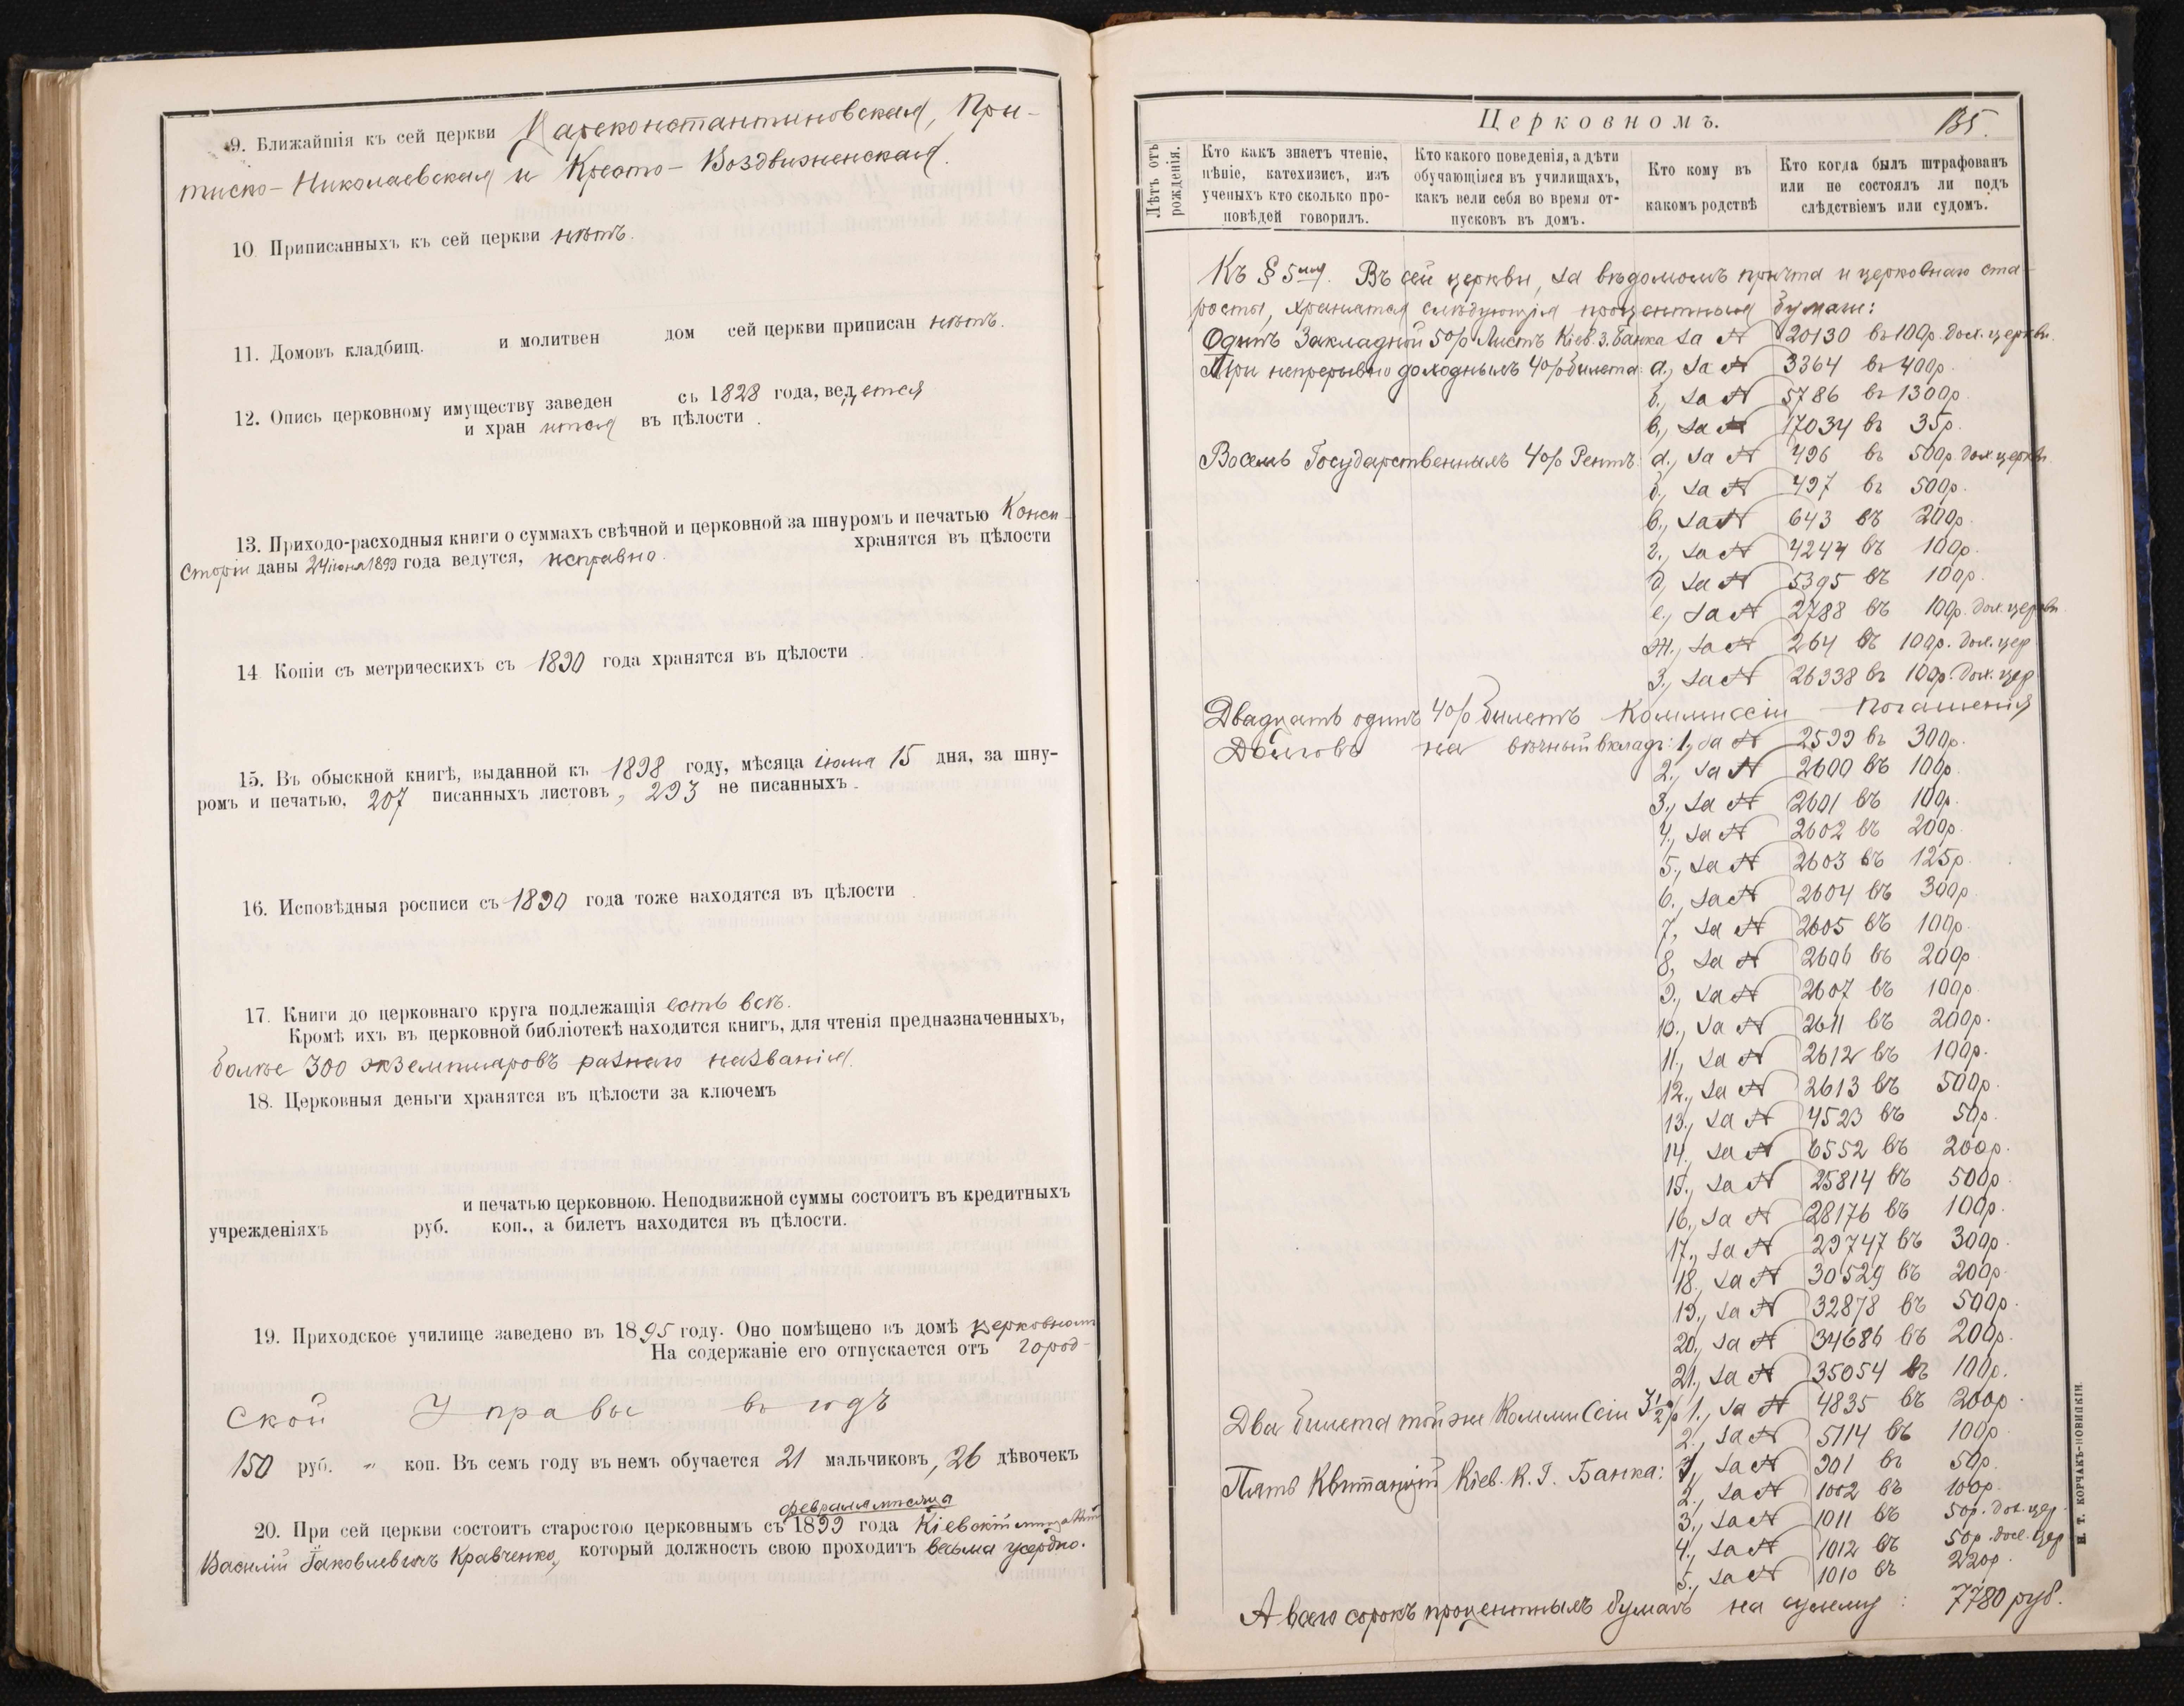 9. Ближайшія къ сей церкви Цареконстантиновская, При-
тиско-Николаевская и Кресто-Воздвиженская.
10. Приписанныхъ къ сей церкви нѣтъ.
11. Домовъ кладбищ. и молитвен дом сей церкви приписан нѣтъ.
12. Опись церковному имуществу заведен съ 1828 года, ведется
и хранится въ цѣлости.
13. Приходо-расходныя книги о суммахъ свѣчной и церковной за шнуромъ и печатью Конси-
сторіи даны 24 іюня 1899 года ведутся, исправно. хранятся въ цѣлости
14. Копіи съ метрическихъ съ 1890 года хранятся въ цѣлости.
15. Въ обыскной книгѣ, выданной къ 1898 году, мѣсяца іюня 15 дня, за шну-
ромъ и печатью, 207 писанныхъ листовъ, 293 не писанныхъ.
16. Исповѣдныя росписи съ 1890 года тоже находятся въ цѣлости.
17. Книги до церковнаго круга подлежащія есть всѣ.
Кромѣ ихъ въ церковной библіотекѣ находится книгъ, для чтенія предназначенныхъ,
болѣе 300 экземпляровъ разнаго названія.
18. Церковныя деньги хранятся въ цѣлости за ключемъ
и печатью церковною. Неподвижной суммы состоитъ въ кредитныхъ
учрежденіяхъ руб. коп., а билетъ находится въ цѣлости.
19. Приходское училище заведено въ 1895 году. Оно помѣщено въ домѣ церковномъ
На содержаніе его отпускается отъ город-
ской Управы въ годъ
150 руб. „ коп. Въ семъ году въ немъ обучается 21 мальчиковъ, 26 дѣвочекъ
февраля мѣсяца
20. При сей церкви состоитъ старостою церковнымъ съ 1899 года Кіевскій мѣщанинъ
Василій Іаковлевичъ Кравченко, который должность свою проходитъ весьма усердно.
Церковномъ.
135.
Лѣтъ отъ рожденія.
Кто какъ знаетъ чтеніе, пѣніе, катехизисъ, изъ ученыхъ кто сколько проповѣдей говорилъ.
Кто какого поведенія, а дѣти обучающіяся въ училищахъ, какъ вели себя во время отпусковъ въ домъ.
Кто кому въ какомъ родствѣ
Кто когда былъ штрафованъ или не состоялъ ли подъ слѣдствіемъ или судомъ.
Къ § 5му. Въ сей церкви, за вѣдомомъ причта и церковнаго ста-
росты, хранятся слѣдующія процентныя бумаги:
Одинъ Закладной 5% Листъ Кіев. З. Банка за № 20130 въ 100р. дох. церкви.
Три непрерывно доходныхъ 4% билета: а., за № 3364 въ 400р.
б., за № 5786 въ 1300р.
в., за № 17034 въ 35р.
Восемь Государственныхъ 4% Рентъ: а., за № 496 въ 500р. дох. церкви.
б., за № 497 въ 500р.
в., за № 643 въ 200р.
г., за № 4244 въ 100р.
д., за № 5395 въ 100р.
е., за № 2788 въ 100р. дох. церкви.
ж., за № 264 въ 100р. дох. цер.
з., за № 26338 въ 100р. дох. цер.
Двадцать одинъ 4% билетъ Коммиссіи Погашенія
Долговъ на вѣчный вкладъ: 1., за № 2599 въ 300р.
2., за № 2600 въ 100р.
3., за № 2601 въ 100р.
4., за № 2602 въ 200р.
5., за № 2603 въ 125р.
6., за № 2604 въ 300р.
7., за № 2605 въ 100р.
8., за № 2606 въ 200р.
9., за № 2607 въ 100р.
10., за № 2611 въ 200р.
11., за № 2612 въ 100р.
12., за № 2613 въ 500р.
13., за № 4523 въ 50р.
14., за № 6552 въ 200р.
15., за № 25814 въ 500р.
16., за № 28176 въ 100р.
17., за № 29747 въ 300р.
18., за № 30529 въ 200р.
19., за № 32878 въ 500р.
20., за № 34686 въ 200р.
21., за № 35054 въ 100р.
Два билета той же Коммиссіи 3½% 1., за № 4835 въ 200р.
2., за № 5114 въ 100р.
Пять Квитанцій Кіев. К. Г. Банка: 1., за № 901 въ 50р.
2., за № 1002 въ 100р.
3., за № 1011 въ 50р. дох. цер.
4., за № 1012 въ 50р. дох. цер.
5., за № 1010 въ 220р.
А всего сорокъ процентныхъ бумагъ на сумму: 7780 руб.
Н. Т. КОРЧАКЪ-НОВИЦКІЙ.